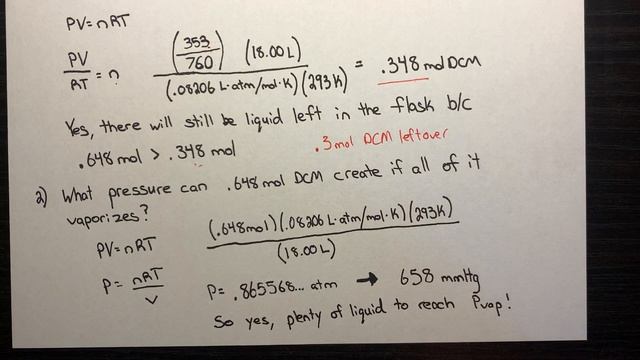 PV=nRT
PV/RT = n (353/760)(18.00L)/(.08206 L·atm/mol·K)(293K) = .348 mol DCM
Yes, there will still be liquid left in the flask b/c
.648 mol > .348 mol .3 mol DCM leftover
2) What pressure can .648 mol DCM create if all of it
vaporizes?
PV=nRT (.648mol)(.08206 L·atm/mol·K)(293K)/(18.00L)
P= nRT/V P= .865568... atm → 658 mmHg
So yes, plenty of liquid to reach Pvap!